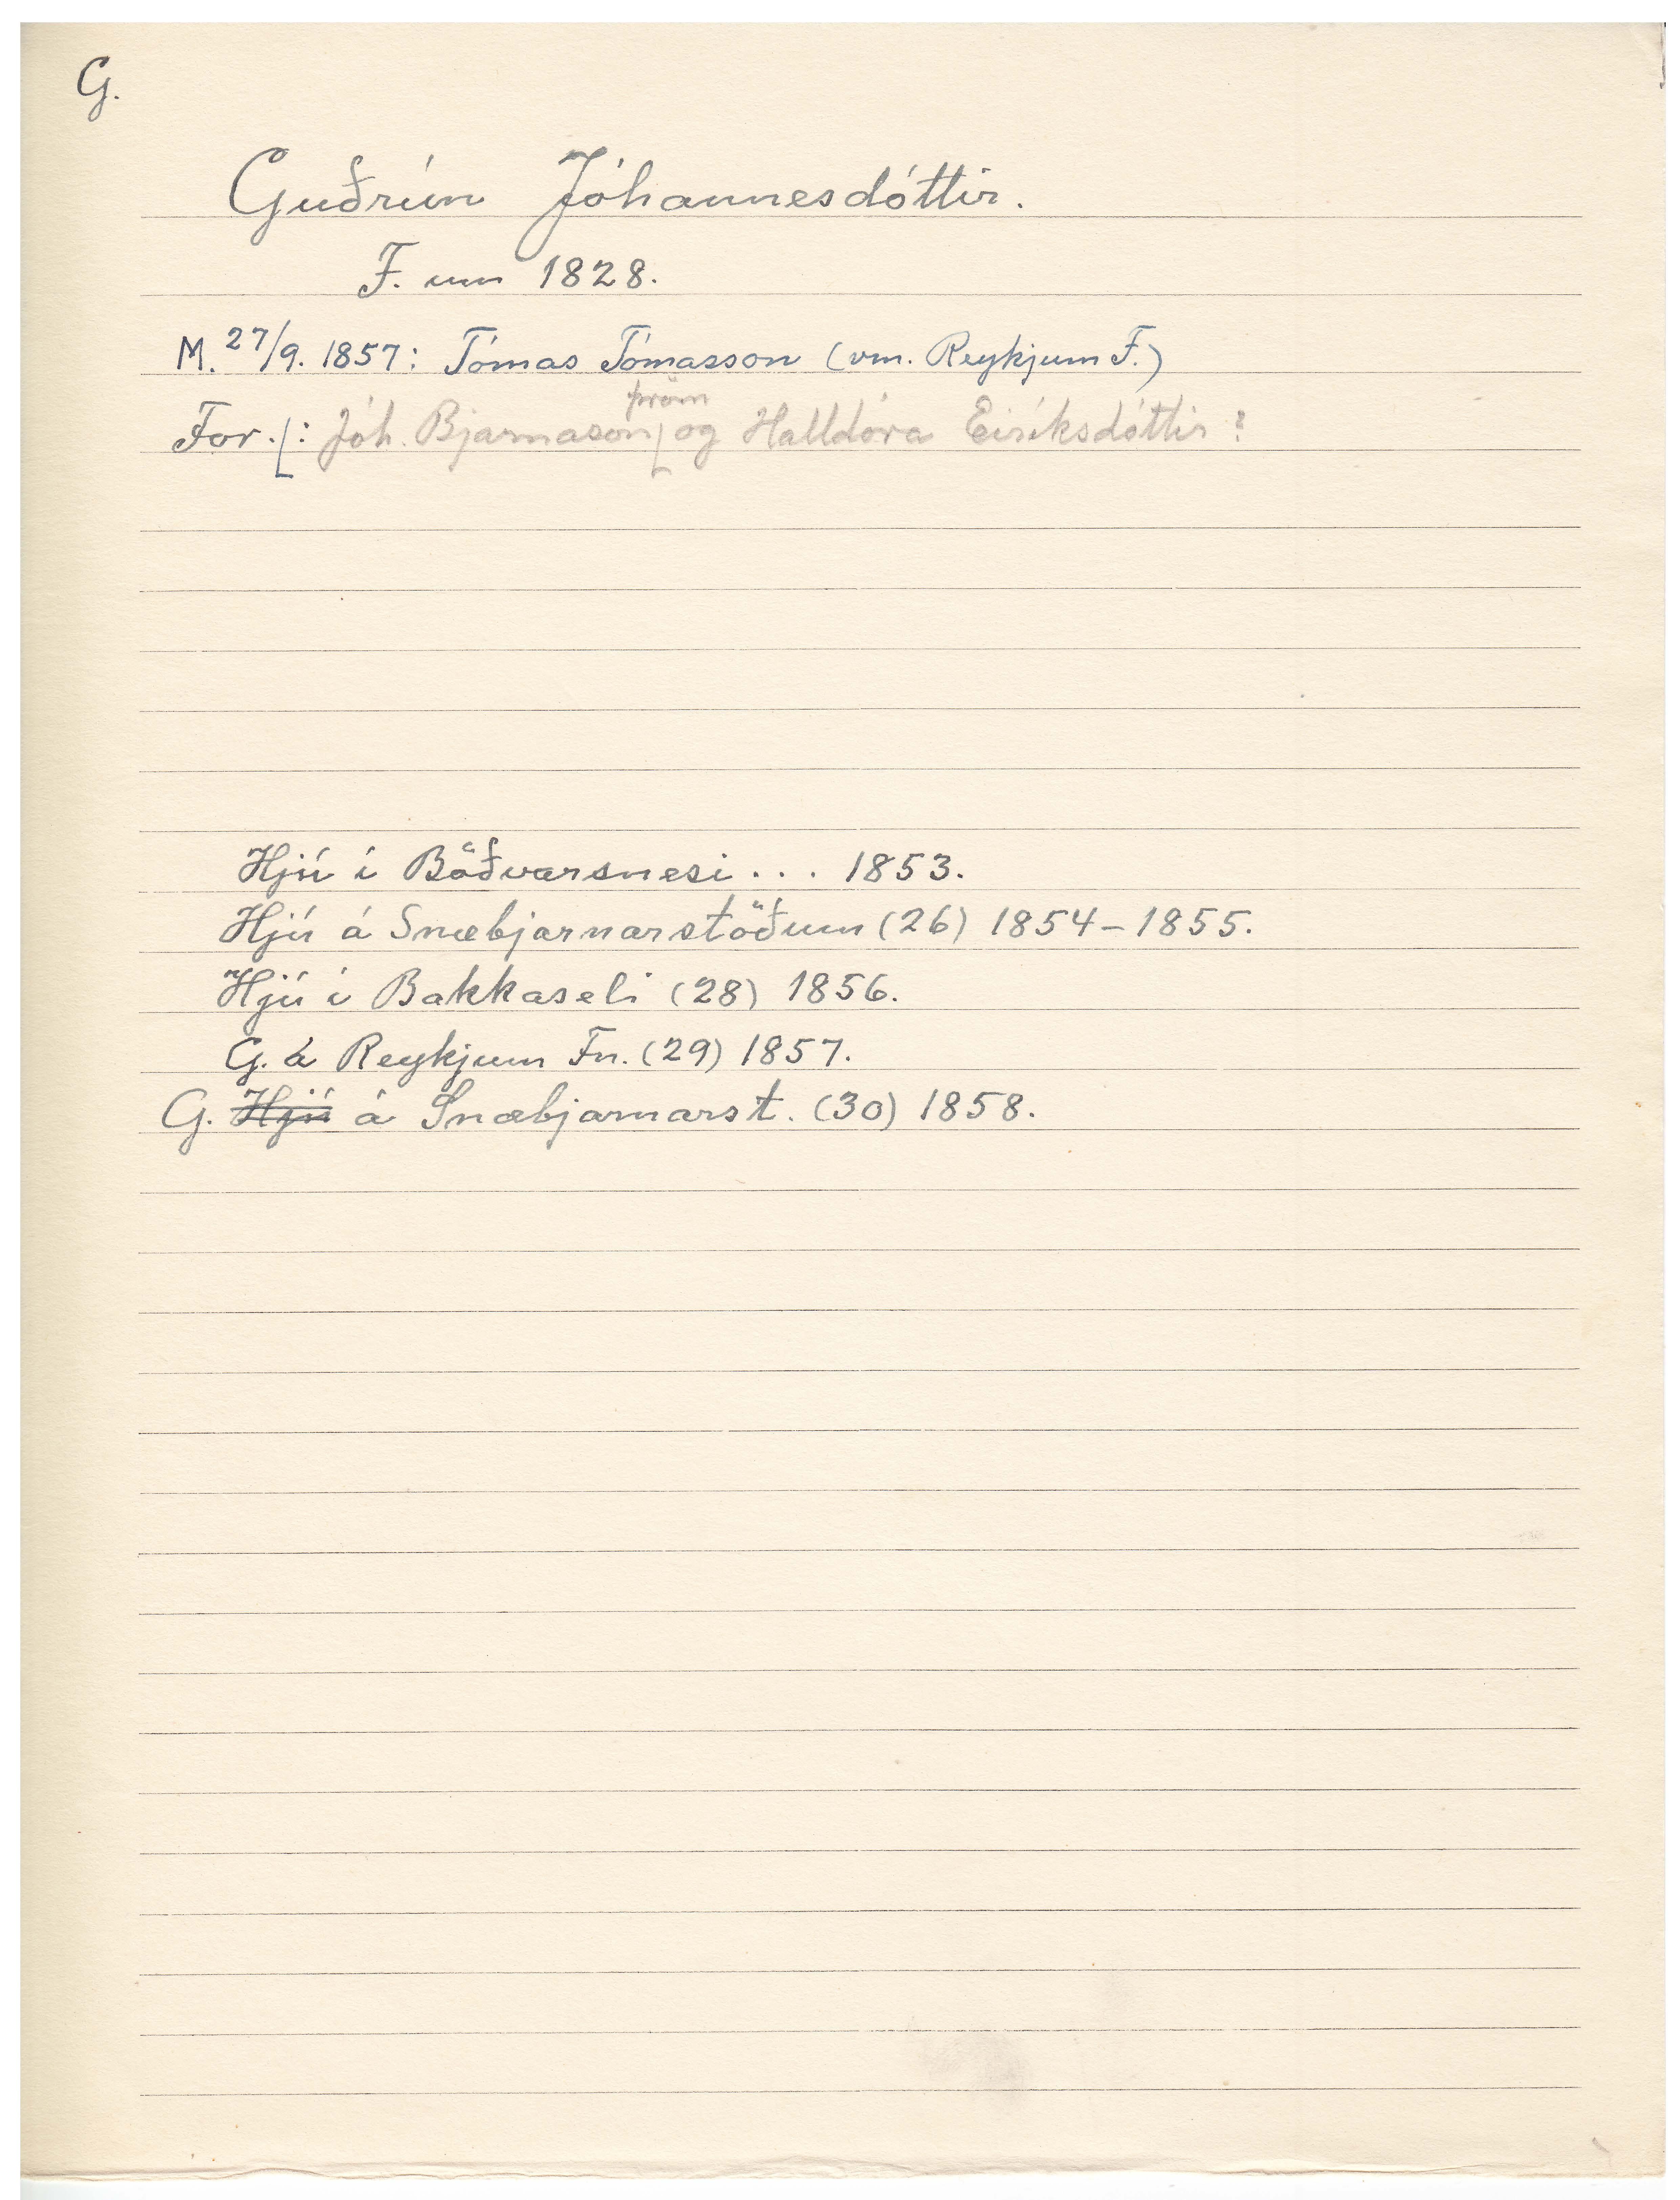 G.
Guðrún Jóhannesdóttir.
F. um 1828.
M. 27/9. 1857: Tómas Tómasson (vm. Reykjum F.)
För.: Jóh. Bjarnason og Halldóra Eiríksdóttir?
Hjú í Böðvarsnesi... 1853.
Hjú á Snæbjarnarstöðum (26) 1854-1855.
Hjú í Bakkaseli (28) 1856.
G. á Reykjum Fn. (29) 1857.
G. Hjú á Snæbjarnarst. (30) 1858.